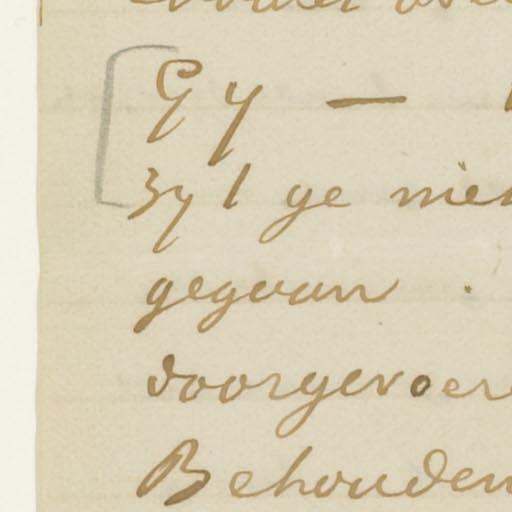 Gy —
zyt ge niet
gegaan .
doorgevoer
Behouden